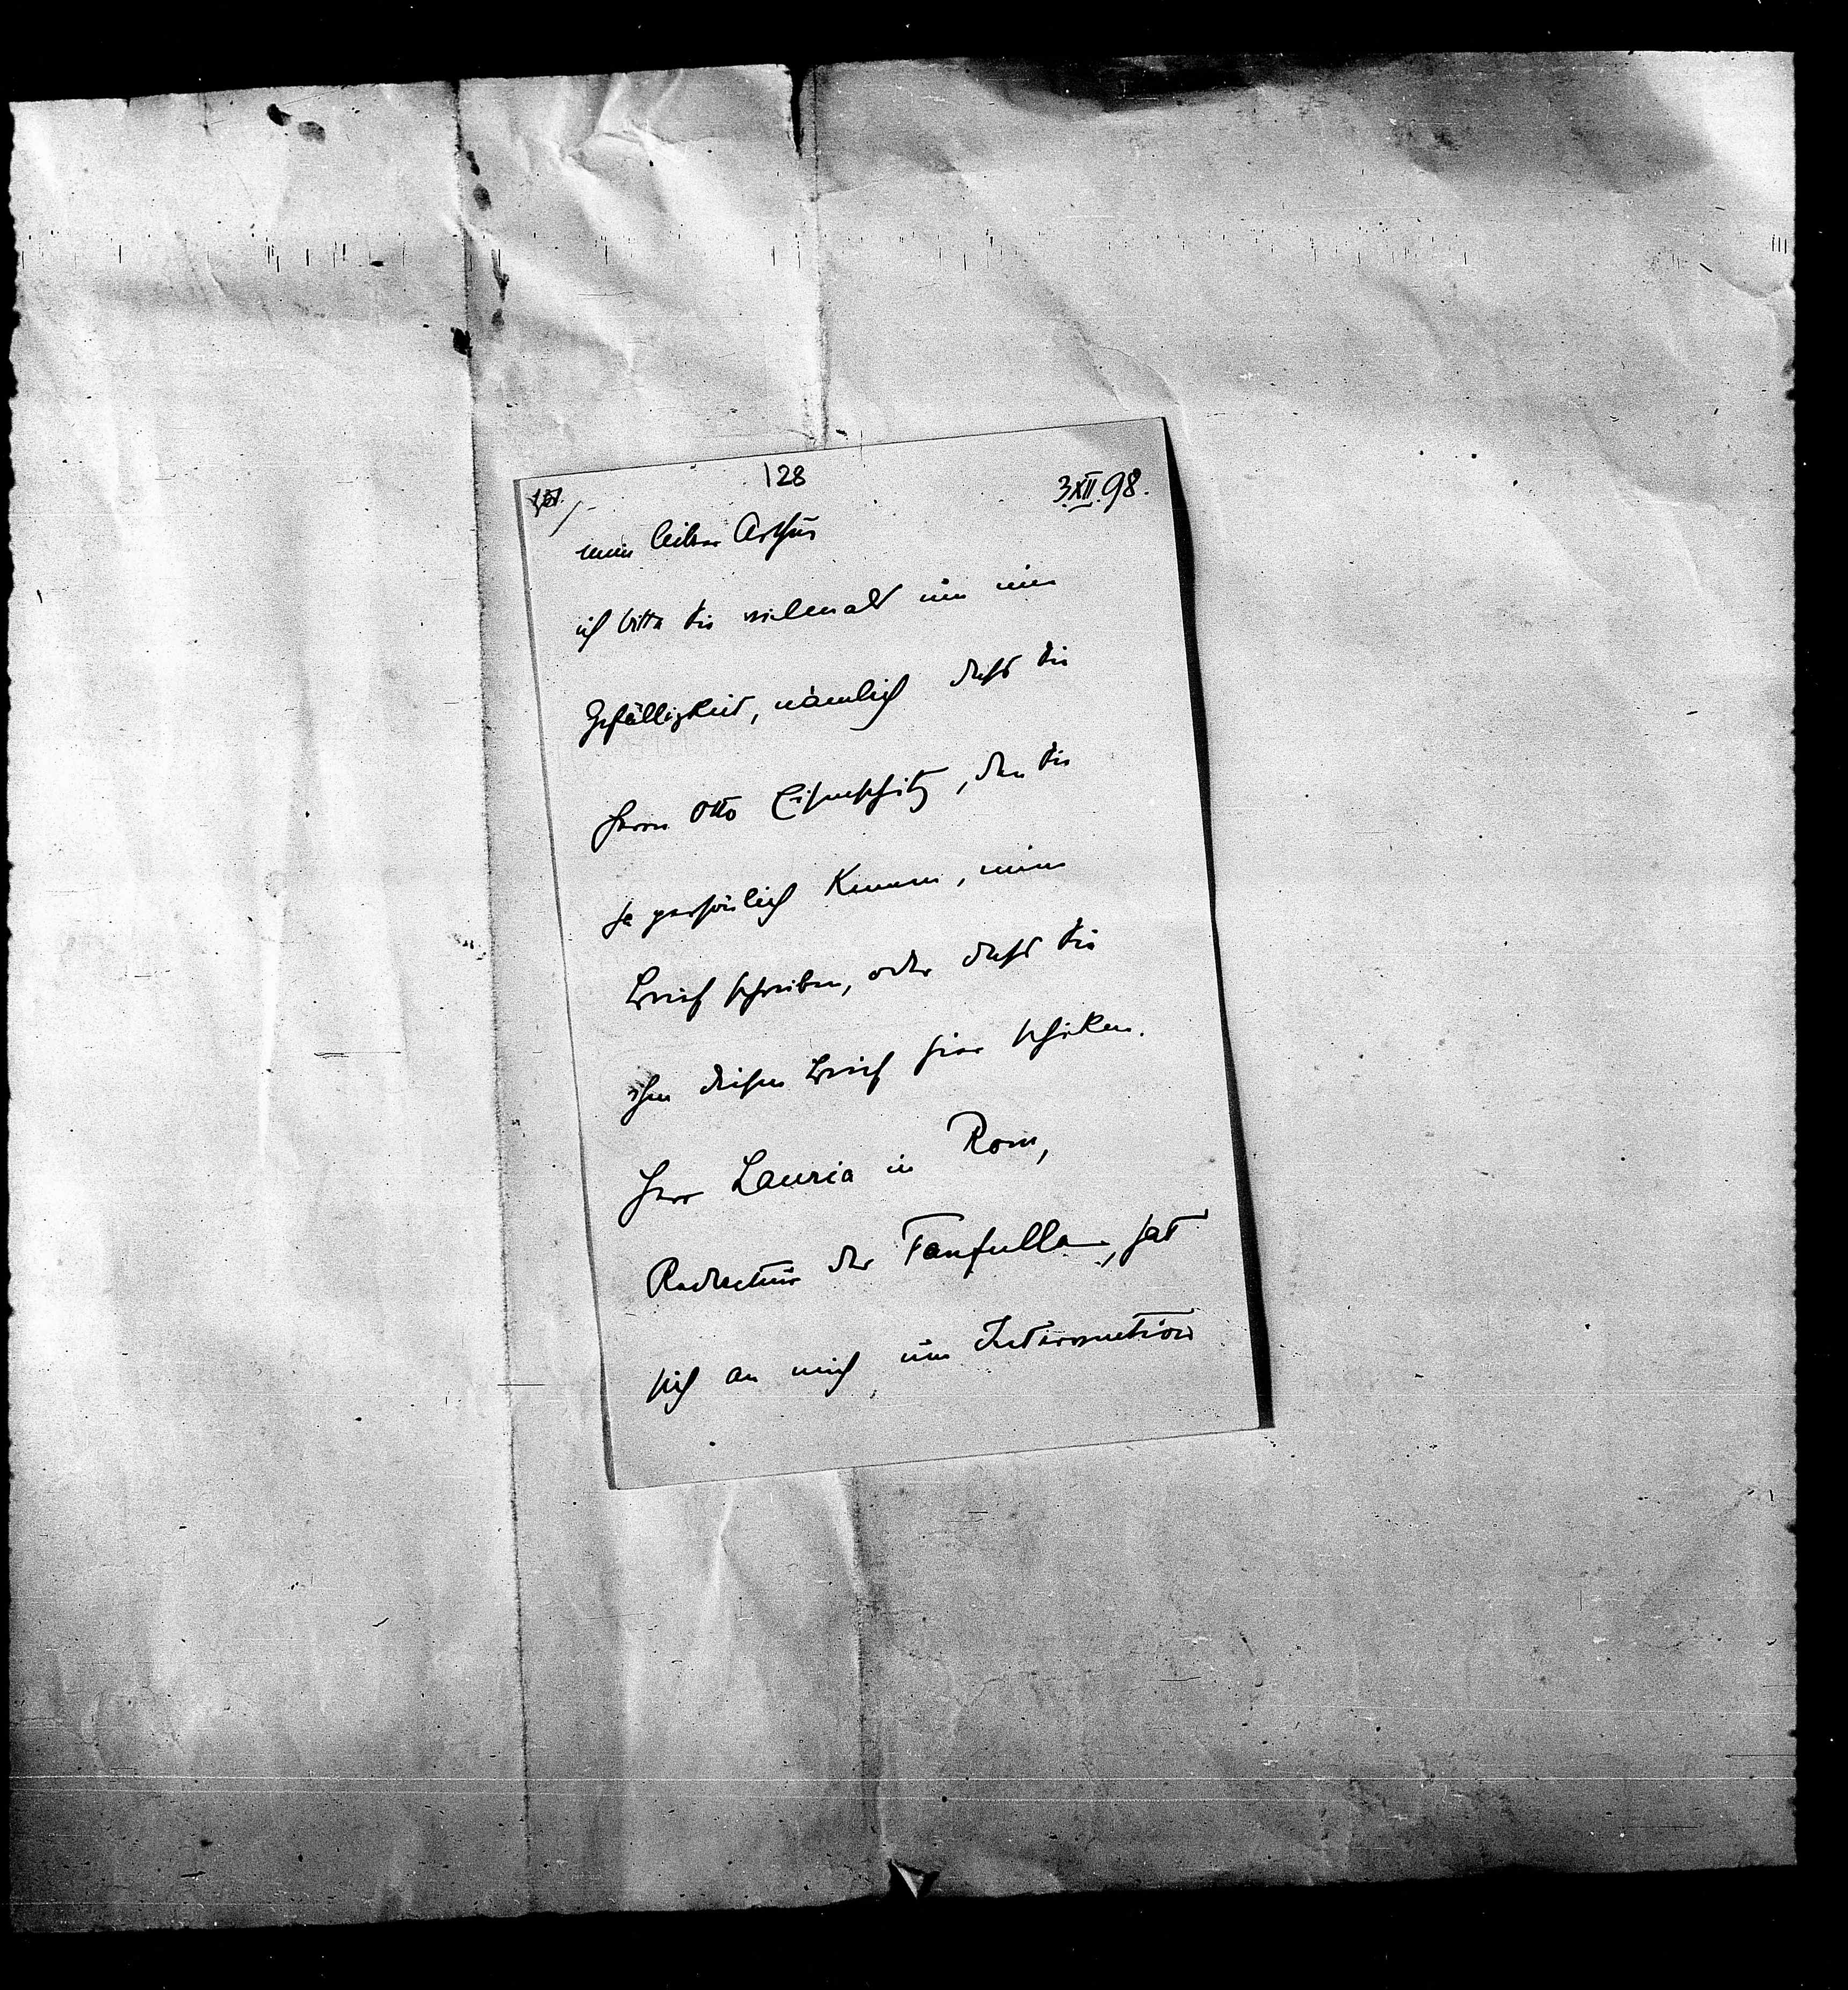 128
3 XII. 98.
mein lieber Arthur
ich bitte Sie vielmals um eine
Gefälligkeit, nämlich dass Sie
Herrn Otto Eisenschitz, den Sie
ja persönlich kennen, einen
Brief schreiben, oder dass Sie
ihm diesen Brief hier schicken.
Herr Lauria in Rom,
Redacteur der Fanfulla, hat
sich an mich um Intervention